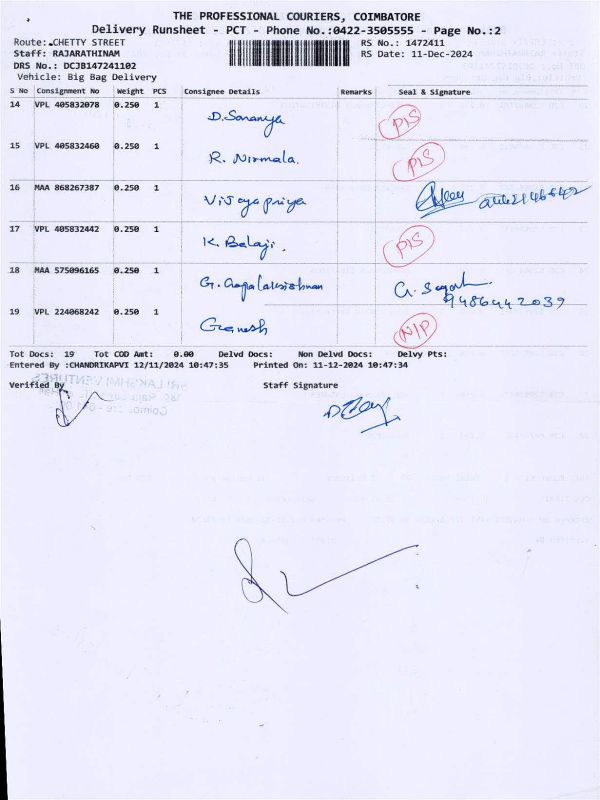 THE PROFESSIONAL COURIERS, COIMBATORE
Delivery Runsheet - PCT - Phone No.:0422-3505555 - Page No.:2
Route: CHETTY STREET RS No.: 1472411
Staff: RAJARATHINAM RS Date: 11-Dec-2024
DRS No.: DCJB147241102
Vehicle: Big Bag Delivery
S No Consignment No Weight PCS Consignee Details Remarks Seal & Signature
14 VPL 405832078 0.250 1 D. Saranya P/S
15 VPL 405832460 0.250 1 R. Nirmala. P/S
16 MAA 868267387 0.250 1 Vijayapriya
17 VPL 405832442 0.250 1 K. Balaji. P/S
18 MAA 575096165 0.250 1 G. Gopalakrishnan
9486442039
19 VPL 224068242 0.250 1 Ganesh N/P
Tot Docs: 19 Tot COD Amt: 0.00 Delvd Docs: Non Delvd Docs: Delvy Pts:
Entered By :CHANDRIKAPVI 12/11/2024 10:47:35 Printed On: 11-12-2024 10:47:34
Verified By Staff Signature